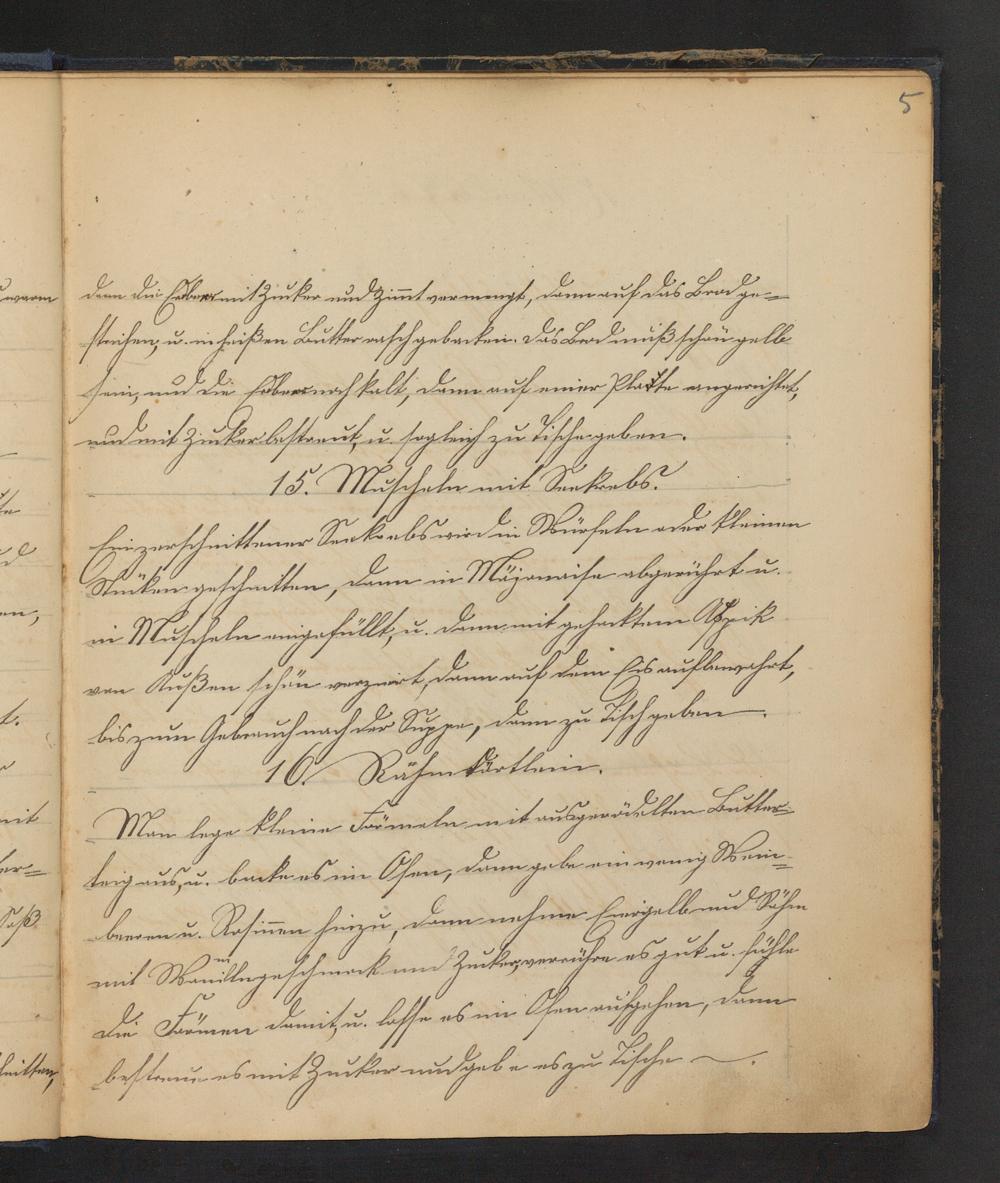 5
dann die Erdbeer mit Zucker und Zimmt vermengt, dann auf das Brod ge=
strichen, u. in heißen Butter rasch gebacken. das Brod muß schön gelb
sein, und die Erdbeer noch kalt, dann auf einer Platte angerichtet,
und mit Zucker bestreut, u. sogleich zu Tische geben.
15. Muscheln mit Seekrebs.
Ein zerschnittener Seekrebs wird in Würfeln oder kleinen
Stücken geschnitten, dann in Mäjonaise abgerührt u.
in Muscheln eingefüllt, u. dann mit gehacktem Aspik
von Außen schön verziert, dann auf dem Eis aufbewahrt,
bis zum Gebrauch nach der Suppe, dann zu Tisch geben.
16. Rähmtörtlein.
Man lege kleine Förmeln mit ausgerädelten Butter=
teig aus, u. backe es im Ofen, dann gebe ein wenig Wein=
beeren u. Rosinen hinzu, dann nehme Eiergelb und Rähm
mit Wanillegeschmack und Zucker, verrühre es gut u. fühle
die Förmen damit, u. lasse es im Ofen aufgehen, dann
bestreue es mit Zucker und gebe es zu Tische.
warm
en,
t.
mit
er=
Saß